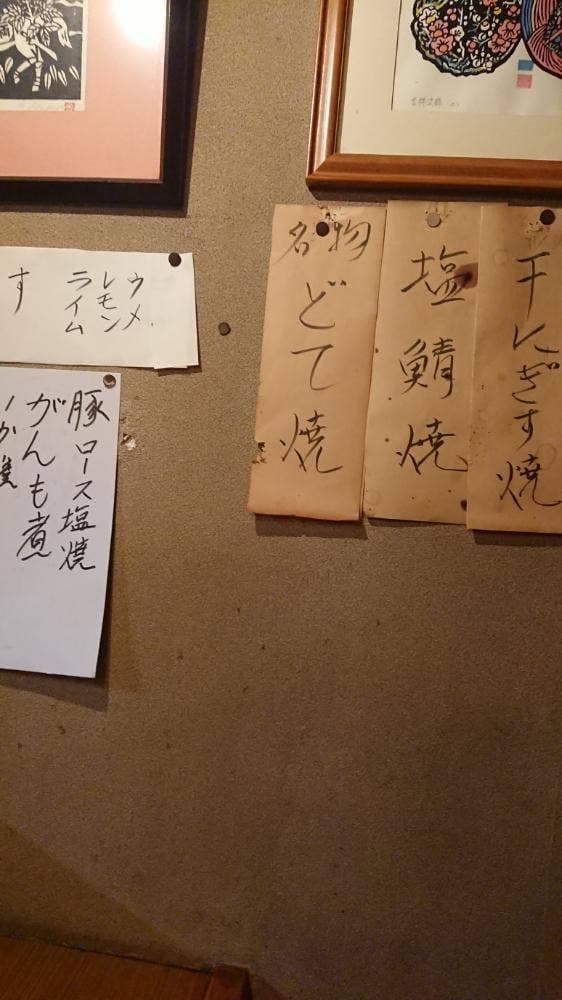 干にぎす焼
塩鯖焼
名物
どて焼
ウメ
レモン
ライム
す
豚ロース塩焼
がんも煮
いか焼